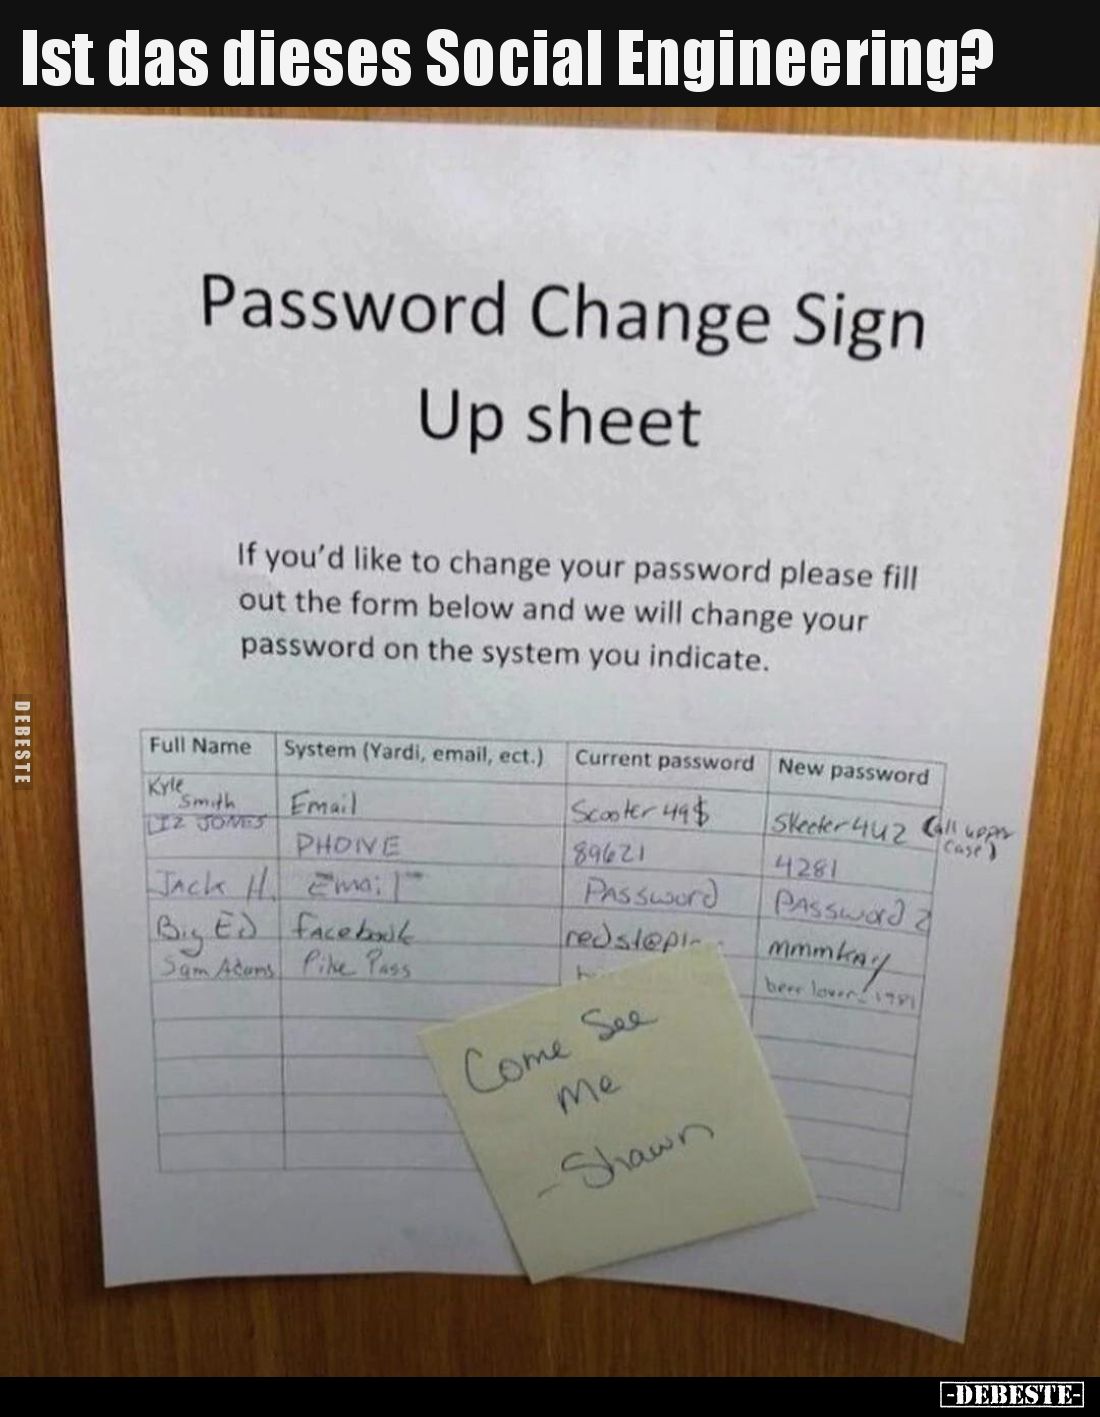 Ist das dieses Social Engineering?
Password Change Sign
Up sheet
If you'd like to change your password please fill
out the form below and we will change your
password on the system you indicate.
Full Name System (Yardi, email, ect.) Current password New password
Kyle Smith Email Scooter49$ Skeeter4U2 (all upper case)
LIZ JONES PHONE 89621 4281
Jack H. Email PAssword PAssword2
Big Ed facebook mmmkay
Sam Adams Pike Pass beer lover! 1981
Come See
Me
- Shawn
DEBESTE
-DEBESTE-